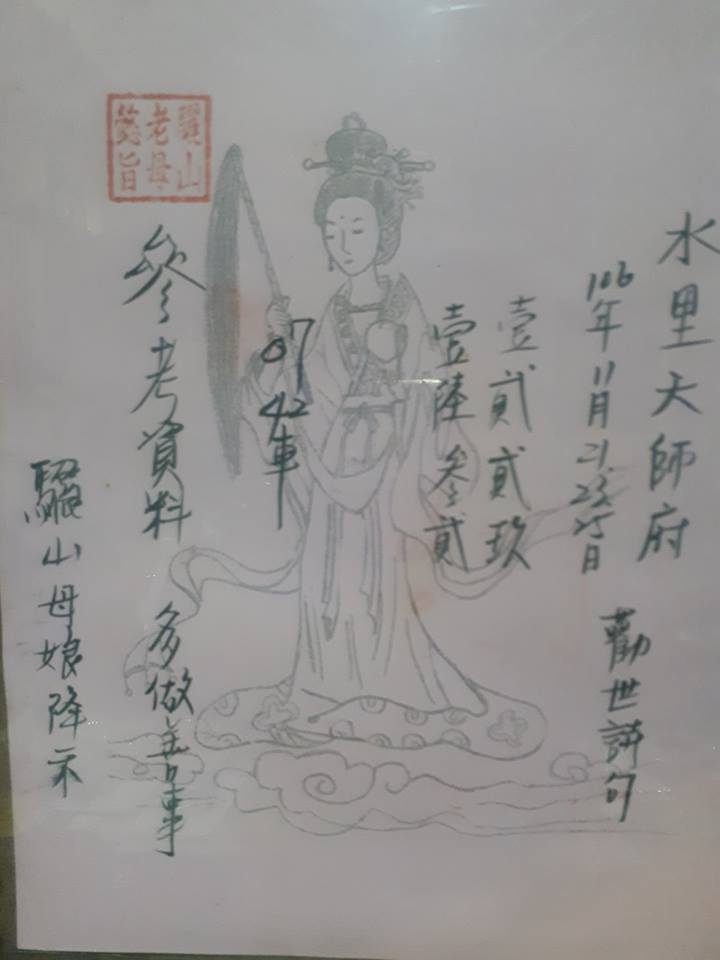 水里天師府
106年11月21.23.25日
勸世詩句
壹貳貳玖
壹陸參貳
07
42車
參考資料
多做善事
驪山母娘降示
驪山
老母
懿旨